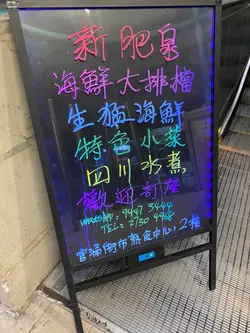 新肥泉
海鮮大排檔
生猛海鮮
特色小菜
四川水煮
歡迎訂座
WHATSAPP: 9447 5444
TEL: 2730 4968
官涌街市熟食中心, 2樓